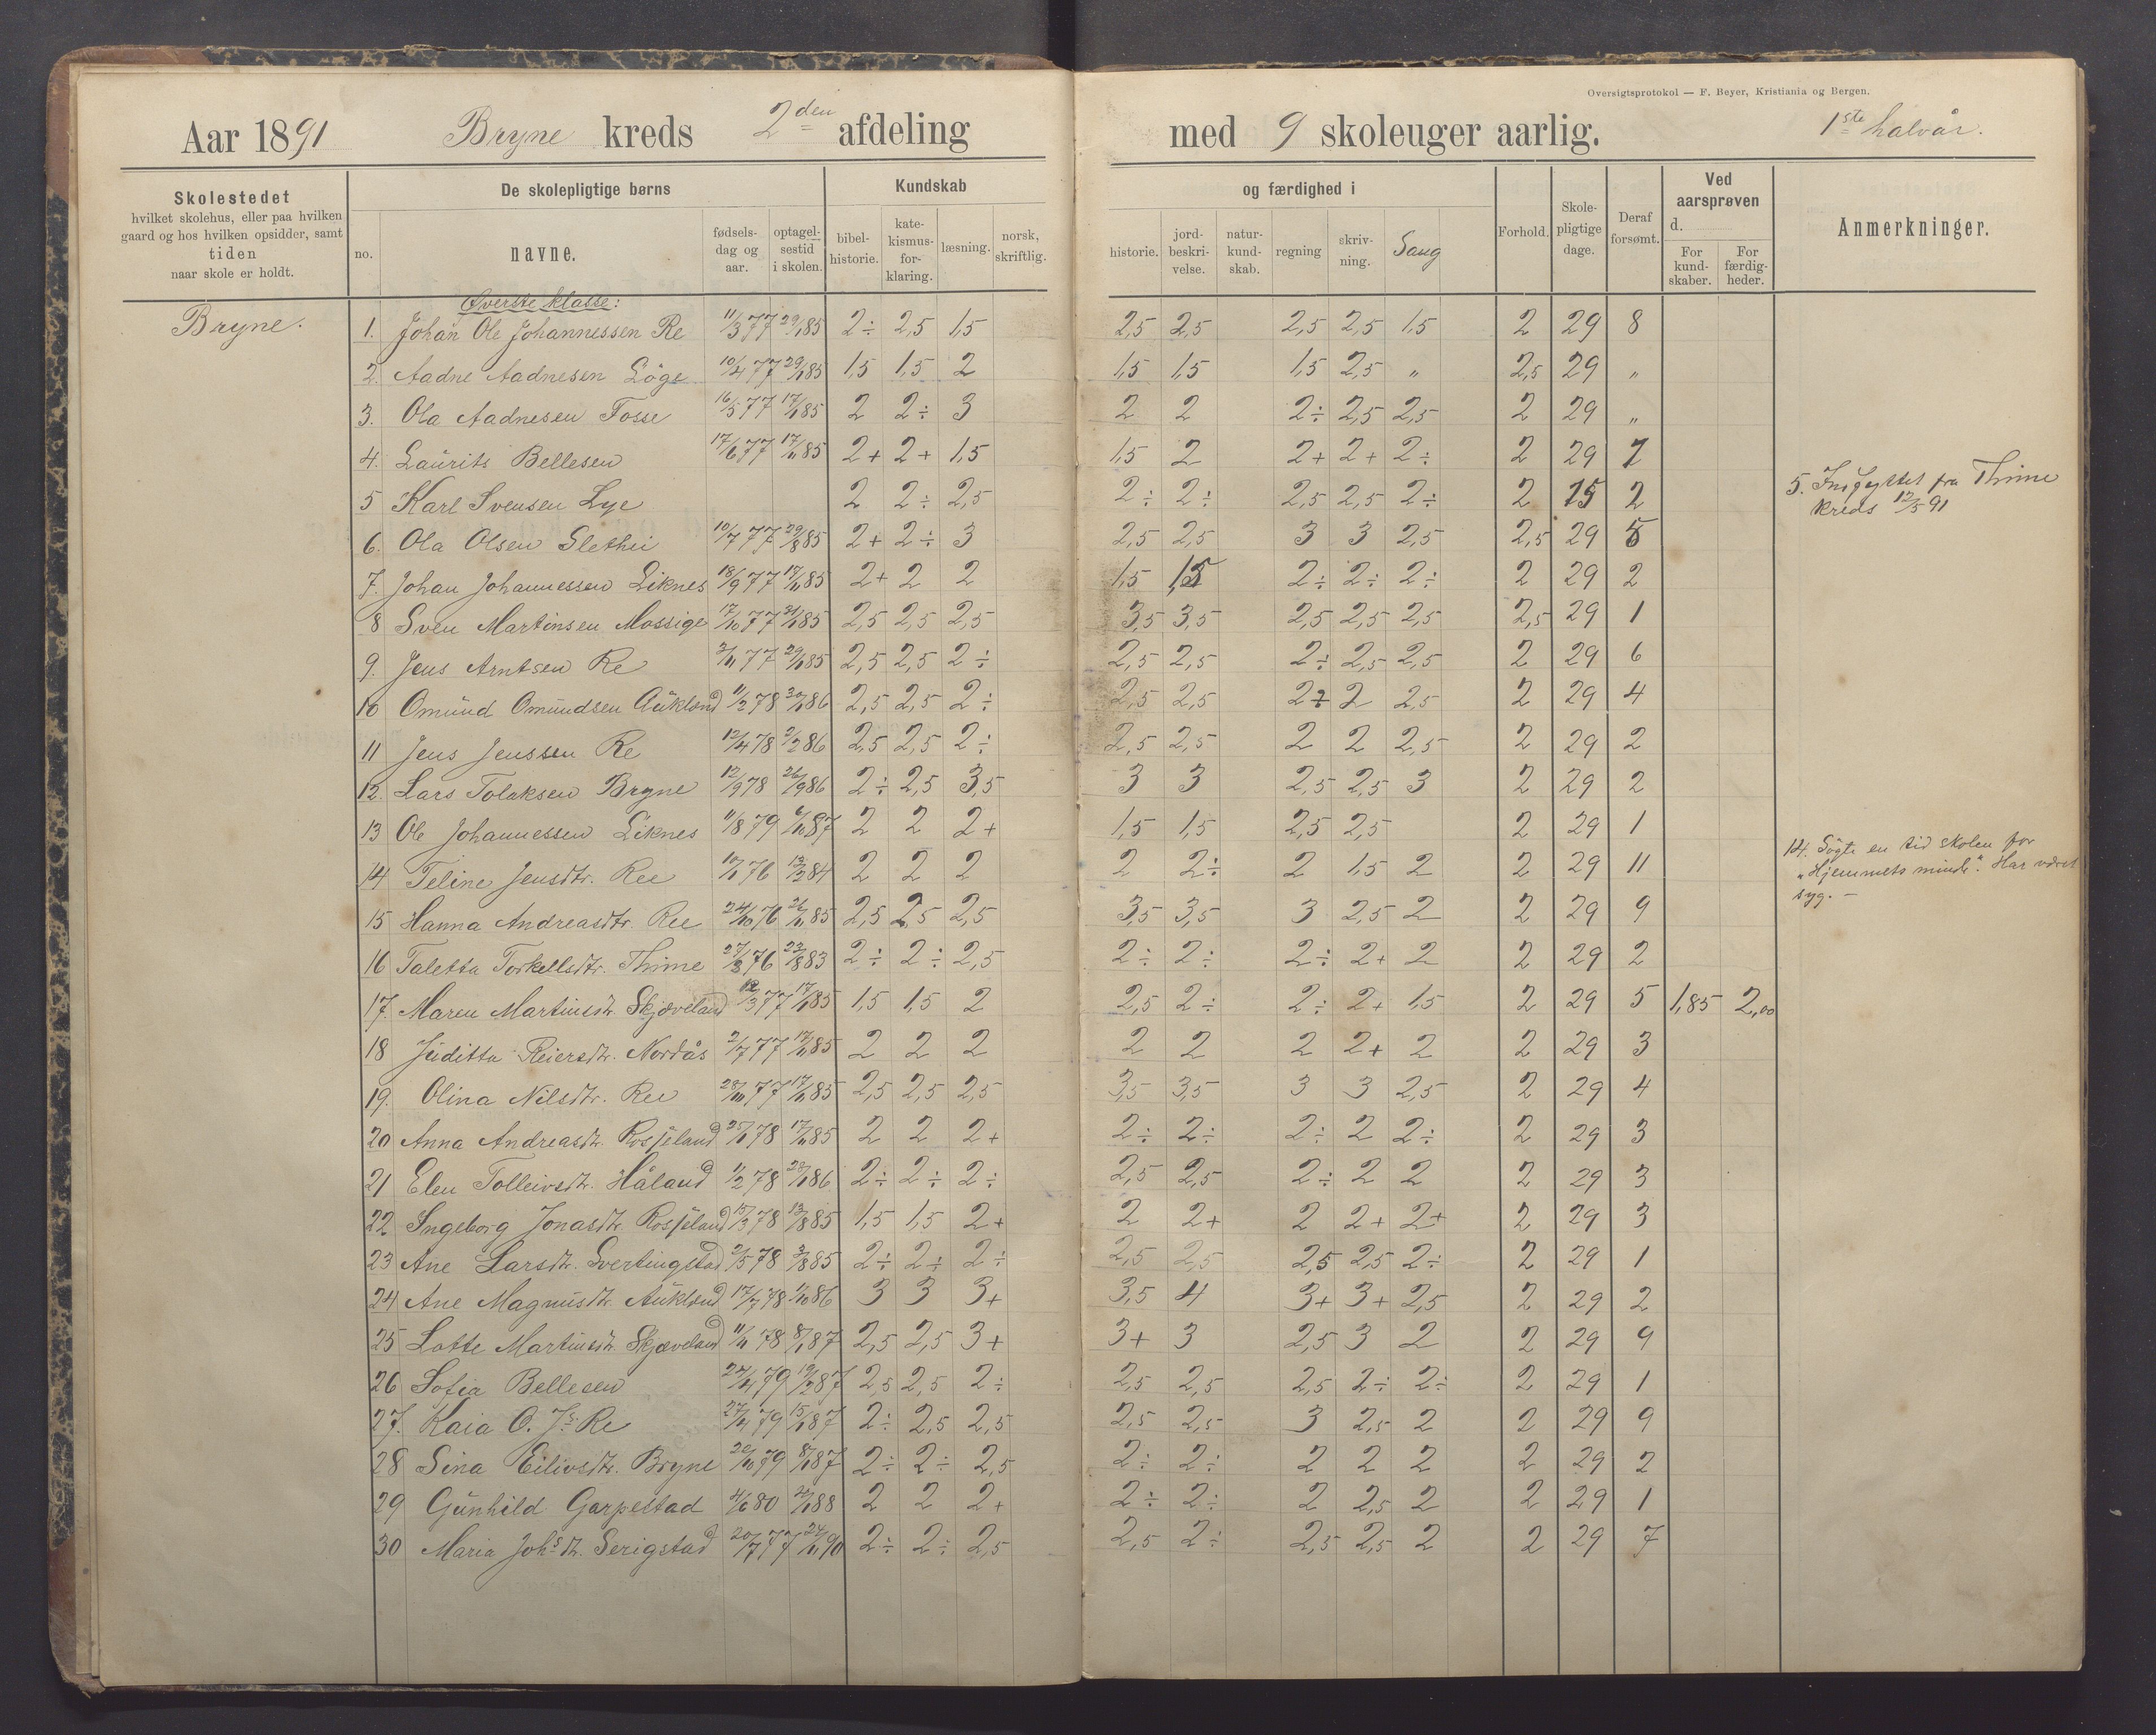 Oversigtsprotokol — F. Beyer, Kristiania og Bergen.
Aar 1891 Bryne kreds 2den afdeling med 9 skoleuger aarlig. 1ste halvår.
Skolestedet
hvilket skolehus, eller paa hvilken
gaard og hos hvilken opsidder, samt
tiden
naar skole er holdt.
De skolepligtige børns
no.
navne.
fødsels-
dag og
aar.
optagel-
sestid
i skolen.
Kundskab
bibel-
historie.
kate-
kismus-
for-
klaring.
læsning.
norsk,
skriftlig.
og færdighed i
historie.
jord-
beskri-
velse.
natur-
kund-
skab.
regning
skriv-
ning.
Sang
Forhold.
Skole-
pligtige
dage.
Deraf
forsømt.
Ved
aarsprøven
d.
For
kund-
skaber.
For
færdig-
heder.
Anmerkninger.
Bryne.
Øverste klasse:
1. Johan Ole Johannessen Re 11/3 77 29/1 85 2÷ 2,5 1,5 2,5 2,5 2,5 2,5 1,5 2 29 8
2. Aadne Aadnesen Löge 10/4 77 29/1 85 1,5 1,5 2 1,5 1,5 1,5 2,5 „ 2,5 29 „
3. Ola Aadnesen Fosse 16/5 77 17/11 85 2 2÷ 3 2 2 2÷ 2,5 2,5 2 29 „
4. Laurits Bellesen 17/6 77 17/11 85 2+ 2+ 1,5 1,5 2 2+ 2+ 2÷ 2 29 7
5 Karl Svensen Lye 2 2÷ 2,5 2÷ 2÷ 2,5 2,5 2÷ 2 15 2
5. Indflyttet fra Thime
kreds 12/5 91
6. Ola Olsen Slethei 10/7 77 29/8 85 2+ 2÷ 3 2,5 2,5 3 3 2,5 2,5 29 5
7. Johan Johannessen Liknes 18/9 77 17/11 85 2+ 2 2 1,5 1,5 2÷ 2÷ 2÷ 2 29 2
8 Sven Martinsen Mossige 17/10 77 21/1 85 2,5 2,5 2,5 3,5 3,5 2,5 2,5 2,5 2,5 29 1
9. Jens Arntsen Re 2/11 77 29/1 85 2,5 2,5 2÷ 2,5 2,5 2÷ 2,5 2,5 2 29 6
10 Omund Omundsen Aukland 11/2 78 20/1 86 2,5 2,5 2÷ 2,5 2,5 2÷ 2 2,5 2 29 4
11 Jens Jenssen Re 12/4 78 2/2 86 2,5 2,5 2÷ 2,5 2,5 2 2 2,5 2 29 2
12. Lars Tolaksen Bryne 12/9 78 26/9 86 2÷ 2,5 3,5 3 3 2,5 2,5 3 2 29 2
13 Ole Johannessen Liknes 11/8 79 6/10 87 2 2 2+ 1,5 1,5 2,5 2,5 2 29 1
14 Teline Jensdtr. Ree 10/1 76 13/2 84 2 2 2 2 2÷ 2 1,5 2 2 29 11
14. Søgte en tid skolen for
„Hjemmets minde". Har været
syg. –
15 Hanna Andreasdtr. Ree 24/10 76 26/11 85 2,5 2,5 2,5 3,5 3,5 3 2,5 2 2 29 9
16 Taletta Torkellsdtr. Thime 27/8 76 23/8 83 2÷ 2÷ 2,5 2÷ 2÷ 2÷ 2+ 2 2 29 2
17. Maren Martinsdtr. Skjæveland 12/3 77 17/11 85 1,5 1,5 2 2,5 2÷ 2÷ 2+ 1,5 2 29 5 1,85 2,00
18 Juditta Reiersdtr. Nordås 2/7 77 17/11 85 2 2 2 2 2 2 2+ 2 2 29 3
19. Olina Nilsdtr. Ree 28/10 77 17/11 85 2,5 2,5 2,5 3,5 3,5 3 3 2,5 2 29 4
20 Anna Andreasdtr. Rosseland 25/1 78 17/11 85 2 2 2+ 2÷ 2÷ 2÷ 2 2÷ 2 29 3
21 Elen Tolleivsdtr. Håland 1/2 78 28/1 86 2÷ 2÷ 2÷ 2,5 2,5 2÷ 2 2 2 29 3
22 Ingeborg Jonasdtr. Rosseland 15/3 78 13/8 85 1,5 1,5 2+ 2 2+ 2 2+ 2+ 2 29 3
23 Ane Larsdtr. Svertingstad 2/5 78 3/8 85 2÷ 2÷ 2÷ 2,5 2,5 2,5 2,5 2÷ 2 29 1
24 Ane Magnusdtr. Aukland 17/7 78 1/10 86 3 3 3+ 3,5 4 3+ 3+ 2,5 2 29 2
25 Lotte Martinsdtr. Skjæveland 11/11 78 8/1 87 2,5 2,5 3+ 3+ 3 2,5 3 2 2 29 9
26 Sofia Bellesen 24/4 79 19/2 87 2,5 2,5 2÷ 2,5 2,5 2,5 2÷ 2÷ 2 29 1
27. Kaia O. Js. Re 27/4 79 15/1 87 2÷ 2,5 2,5 2,5 2,5 3 2,5 2 2 29 9
28 Sina Eilivsdtr. Bryne 20/10 79 8/1 87 2÷ 2÷ 2,5 2÷ 2÷ 2 2 2 2 29 2
29 Gunhild Garpestad 4/6 80 25/1 88 2 2 2+ 2÷ 2÷ 2 2,5 2 2 29 1
30 Maria Johs.dtr. Serigstad 20/7 77 24/11 90 2÷ 2÷ 2,5 2,5 2÷ 2,5 2,5 2 2 29 7